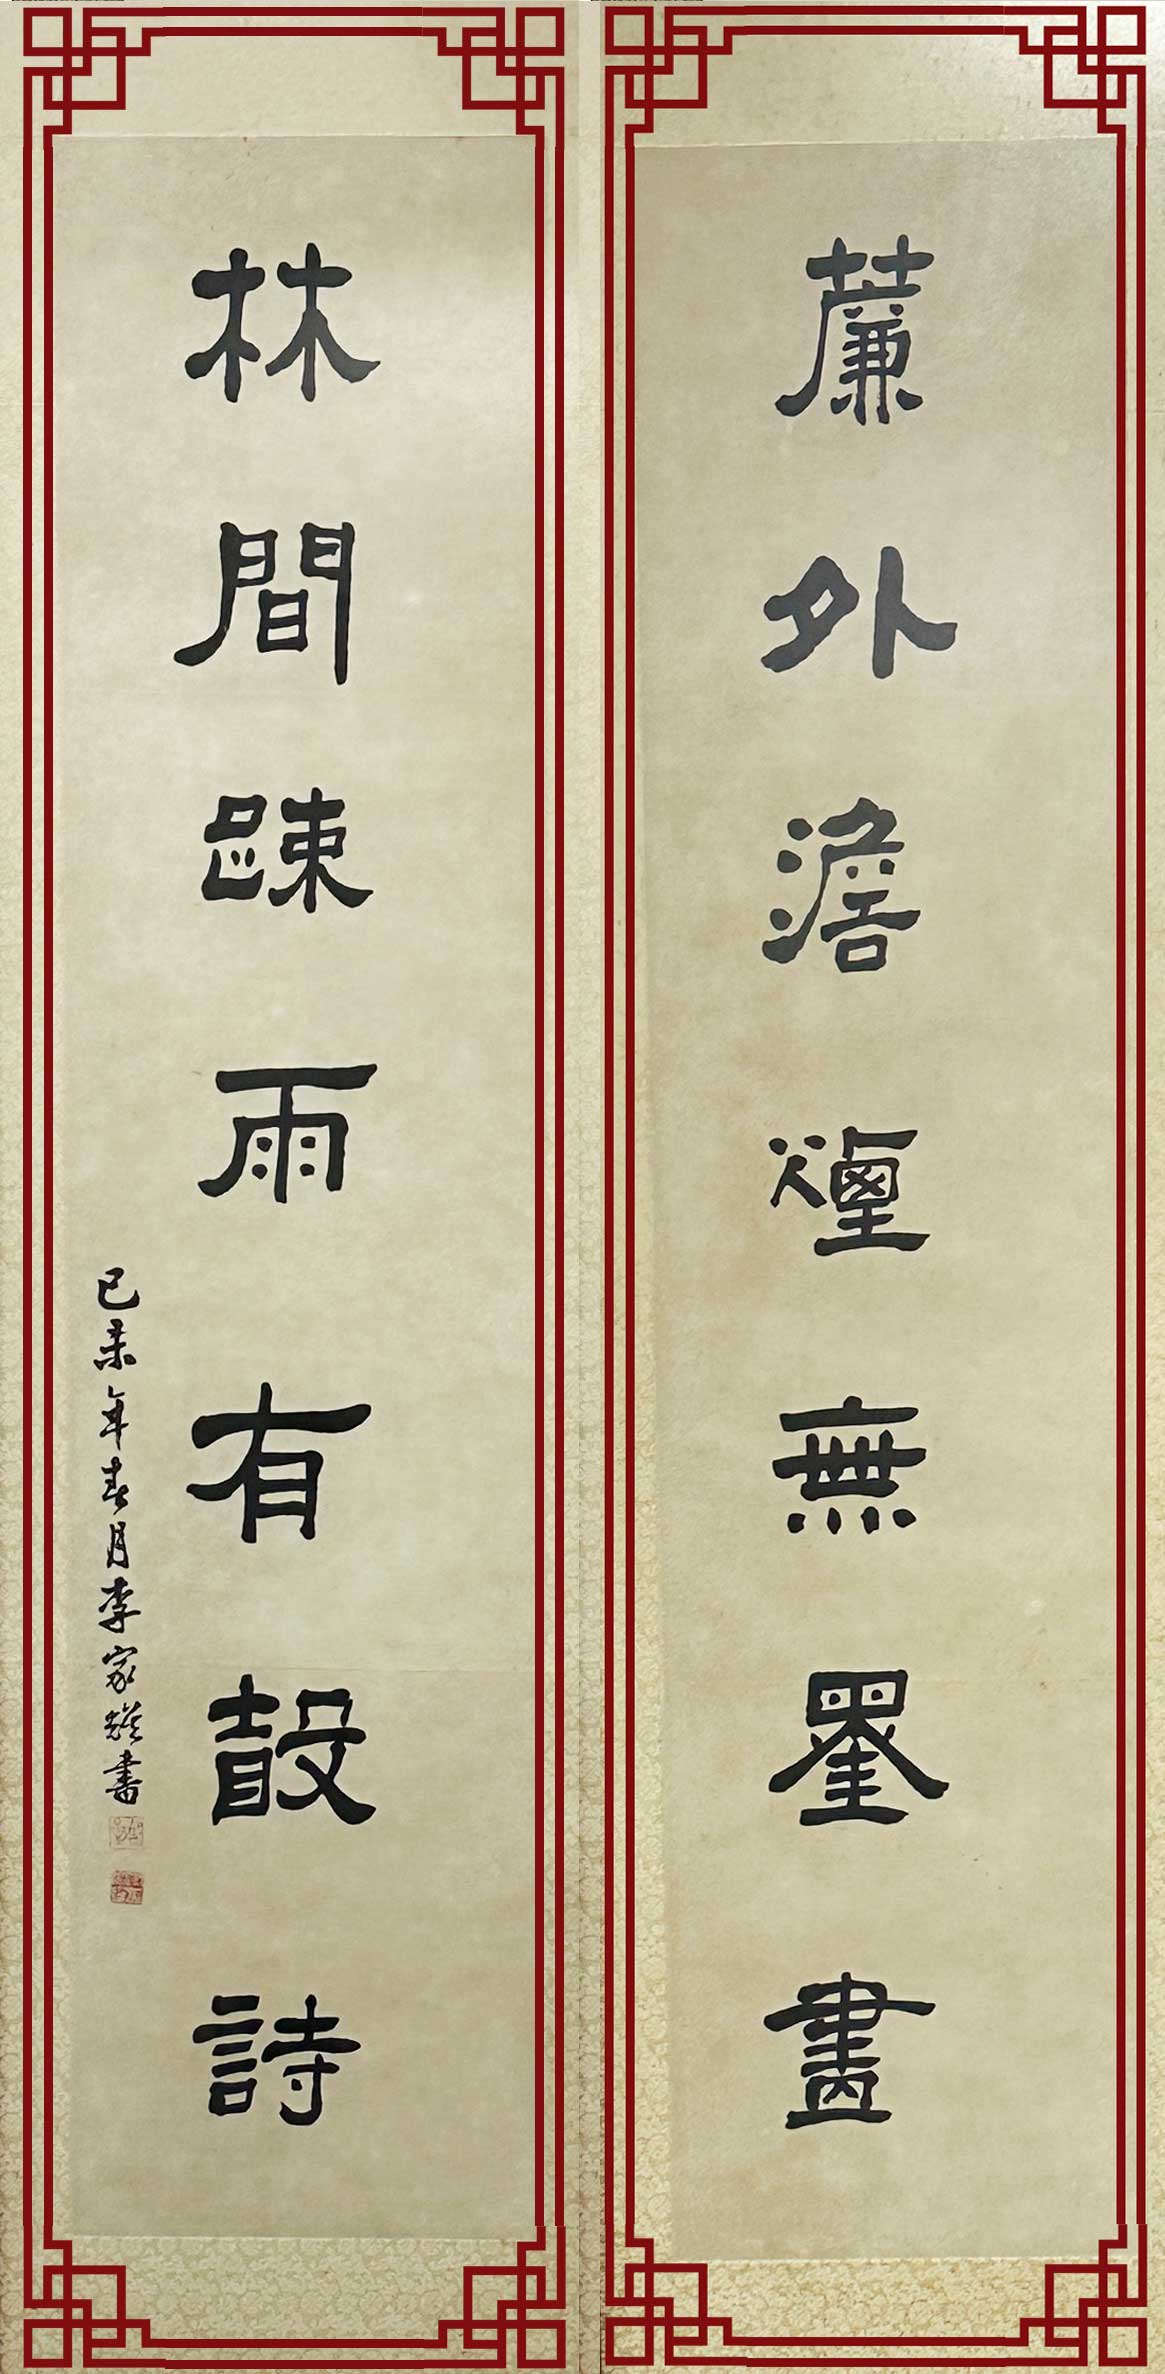 薕外澹煙無墨畫
林間踈雨有聲詩
己未年春月李家耀書